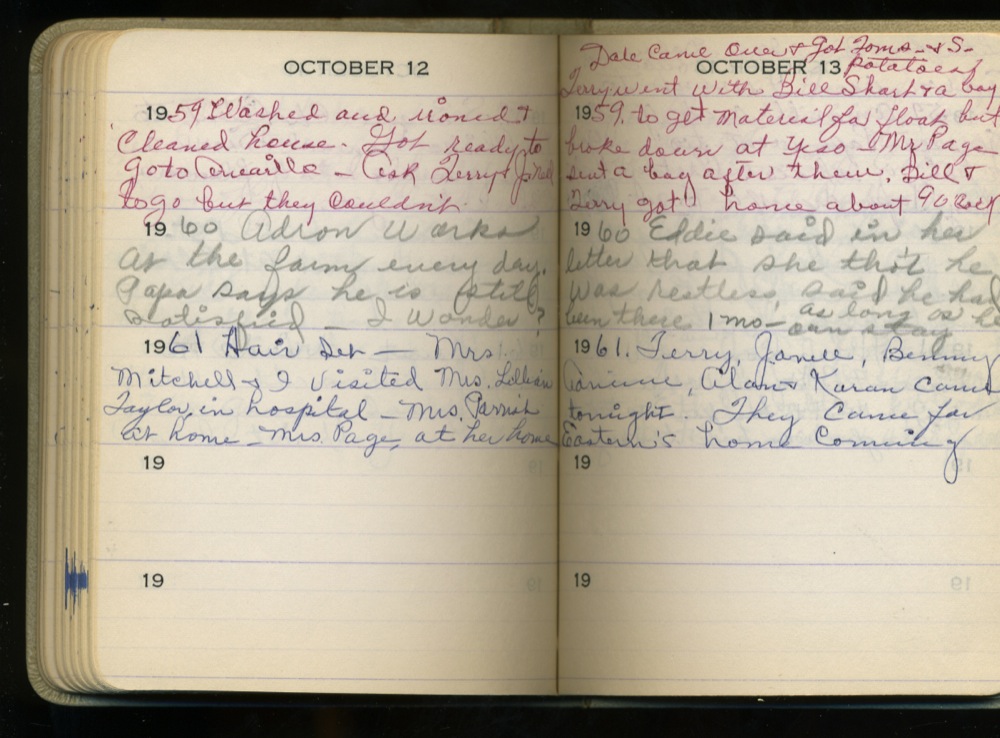 OCTOBER 12
1959 Washed and ironed &
Cleaned house. Got ready to
Go to Amarillo - Ask Terry & J'Nell
to go but they couldn't.
1960 Adron Works
at the farm every day.
Papa says he is still
satisfied - I wonder?
1961 Hair Set - Mrs
Mitchell & I visited Mrs. Lillian
Taylor in hospital - Mrs. Parrish
at home - Mrs. Page, at her home
19
19
Dale Came Over & Got Toma- & S-
Potatoes
OCTOBER 13
Terry went with Bill Sharp & a boy
1959. to get Material for float but
broke down at Yeso - Mr Page
sent a boy after them. Bill &
Terry got home about 9 O clock
1960 Eddie said in her
letter that she tho't he
was restless, said he had
been there 1 mo- as long as he
can stay
1961. Terry, Janell, Benny
Alan & Karan came
tonight. They came for
Eastern's home coming
19
19